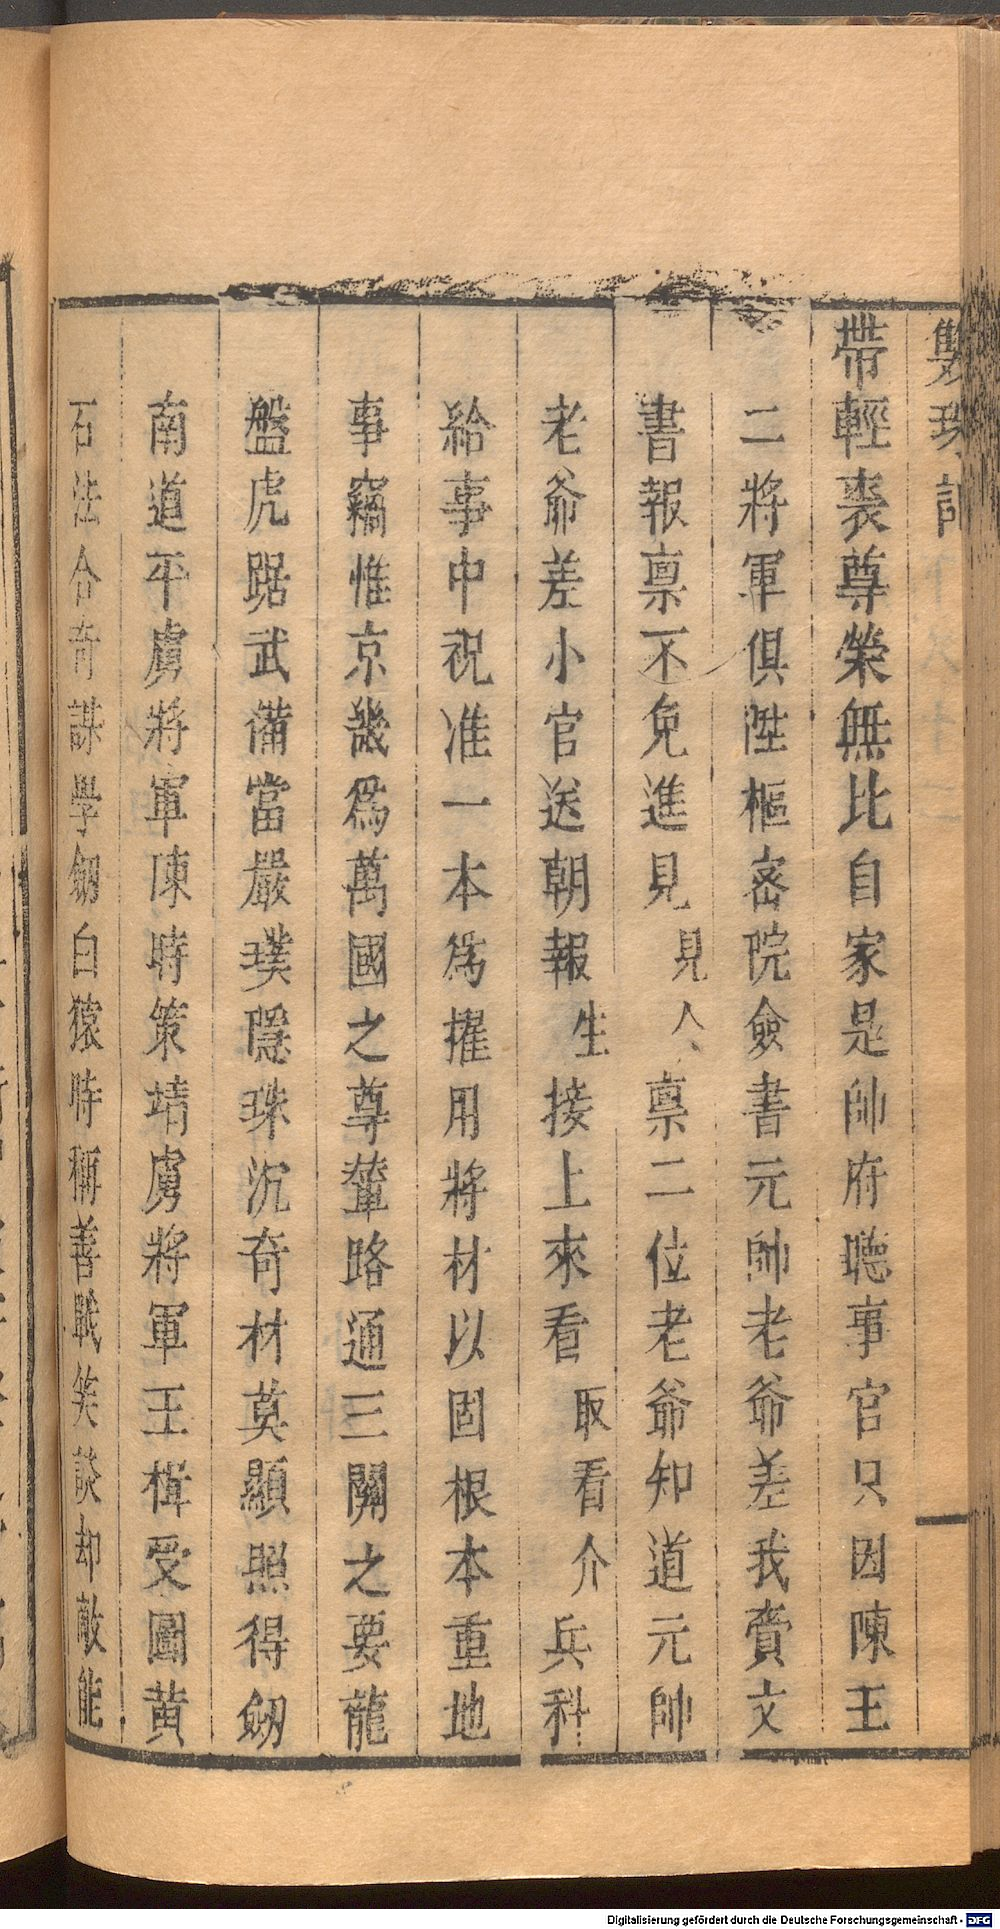 雙珠記
帶輕裘尊榮無比自家是帥府聽事官只因陳王
二將軍俱陞樞密院僉書元帥老爺差我賫文
書報稟不免進見見人稟二位老爺知道元帥
老爺差小官送朝報生接上來看取看介兵科
給事中祝准一本爲擢用將材以固根本重地
事竊惟京畿爲萬國之尊輦路通三關之要龍
盤虎踞武備當嚴璞隱珠沉奇材莫顯照得劒
南道平虜將軍陳時策靖虜將軍王楫受圖黃
石法合奇謀學劒白猿時稱善戰笑談却敵能
Digitalisierung gefördert durch die Deutsche Forschungsgemeinschaft - DFG